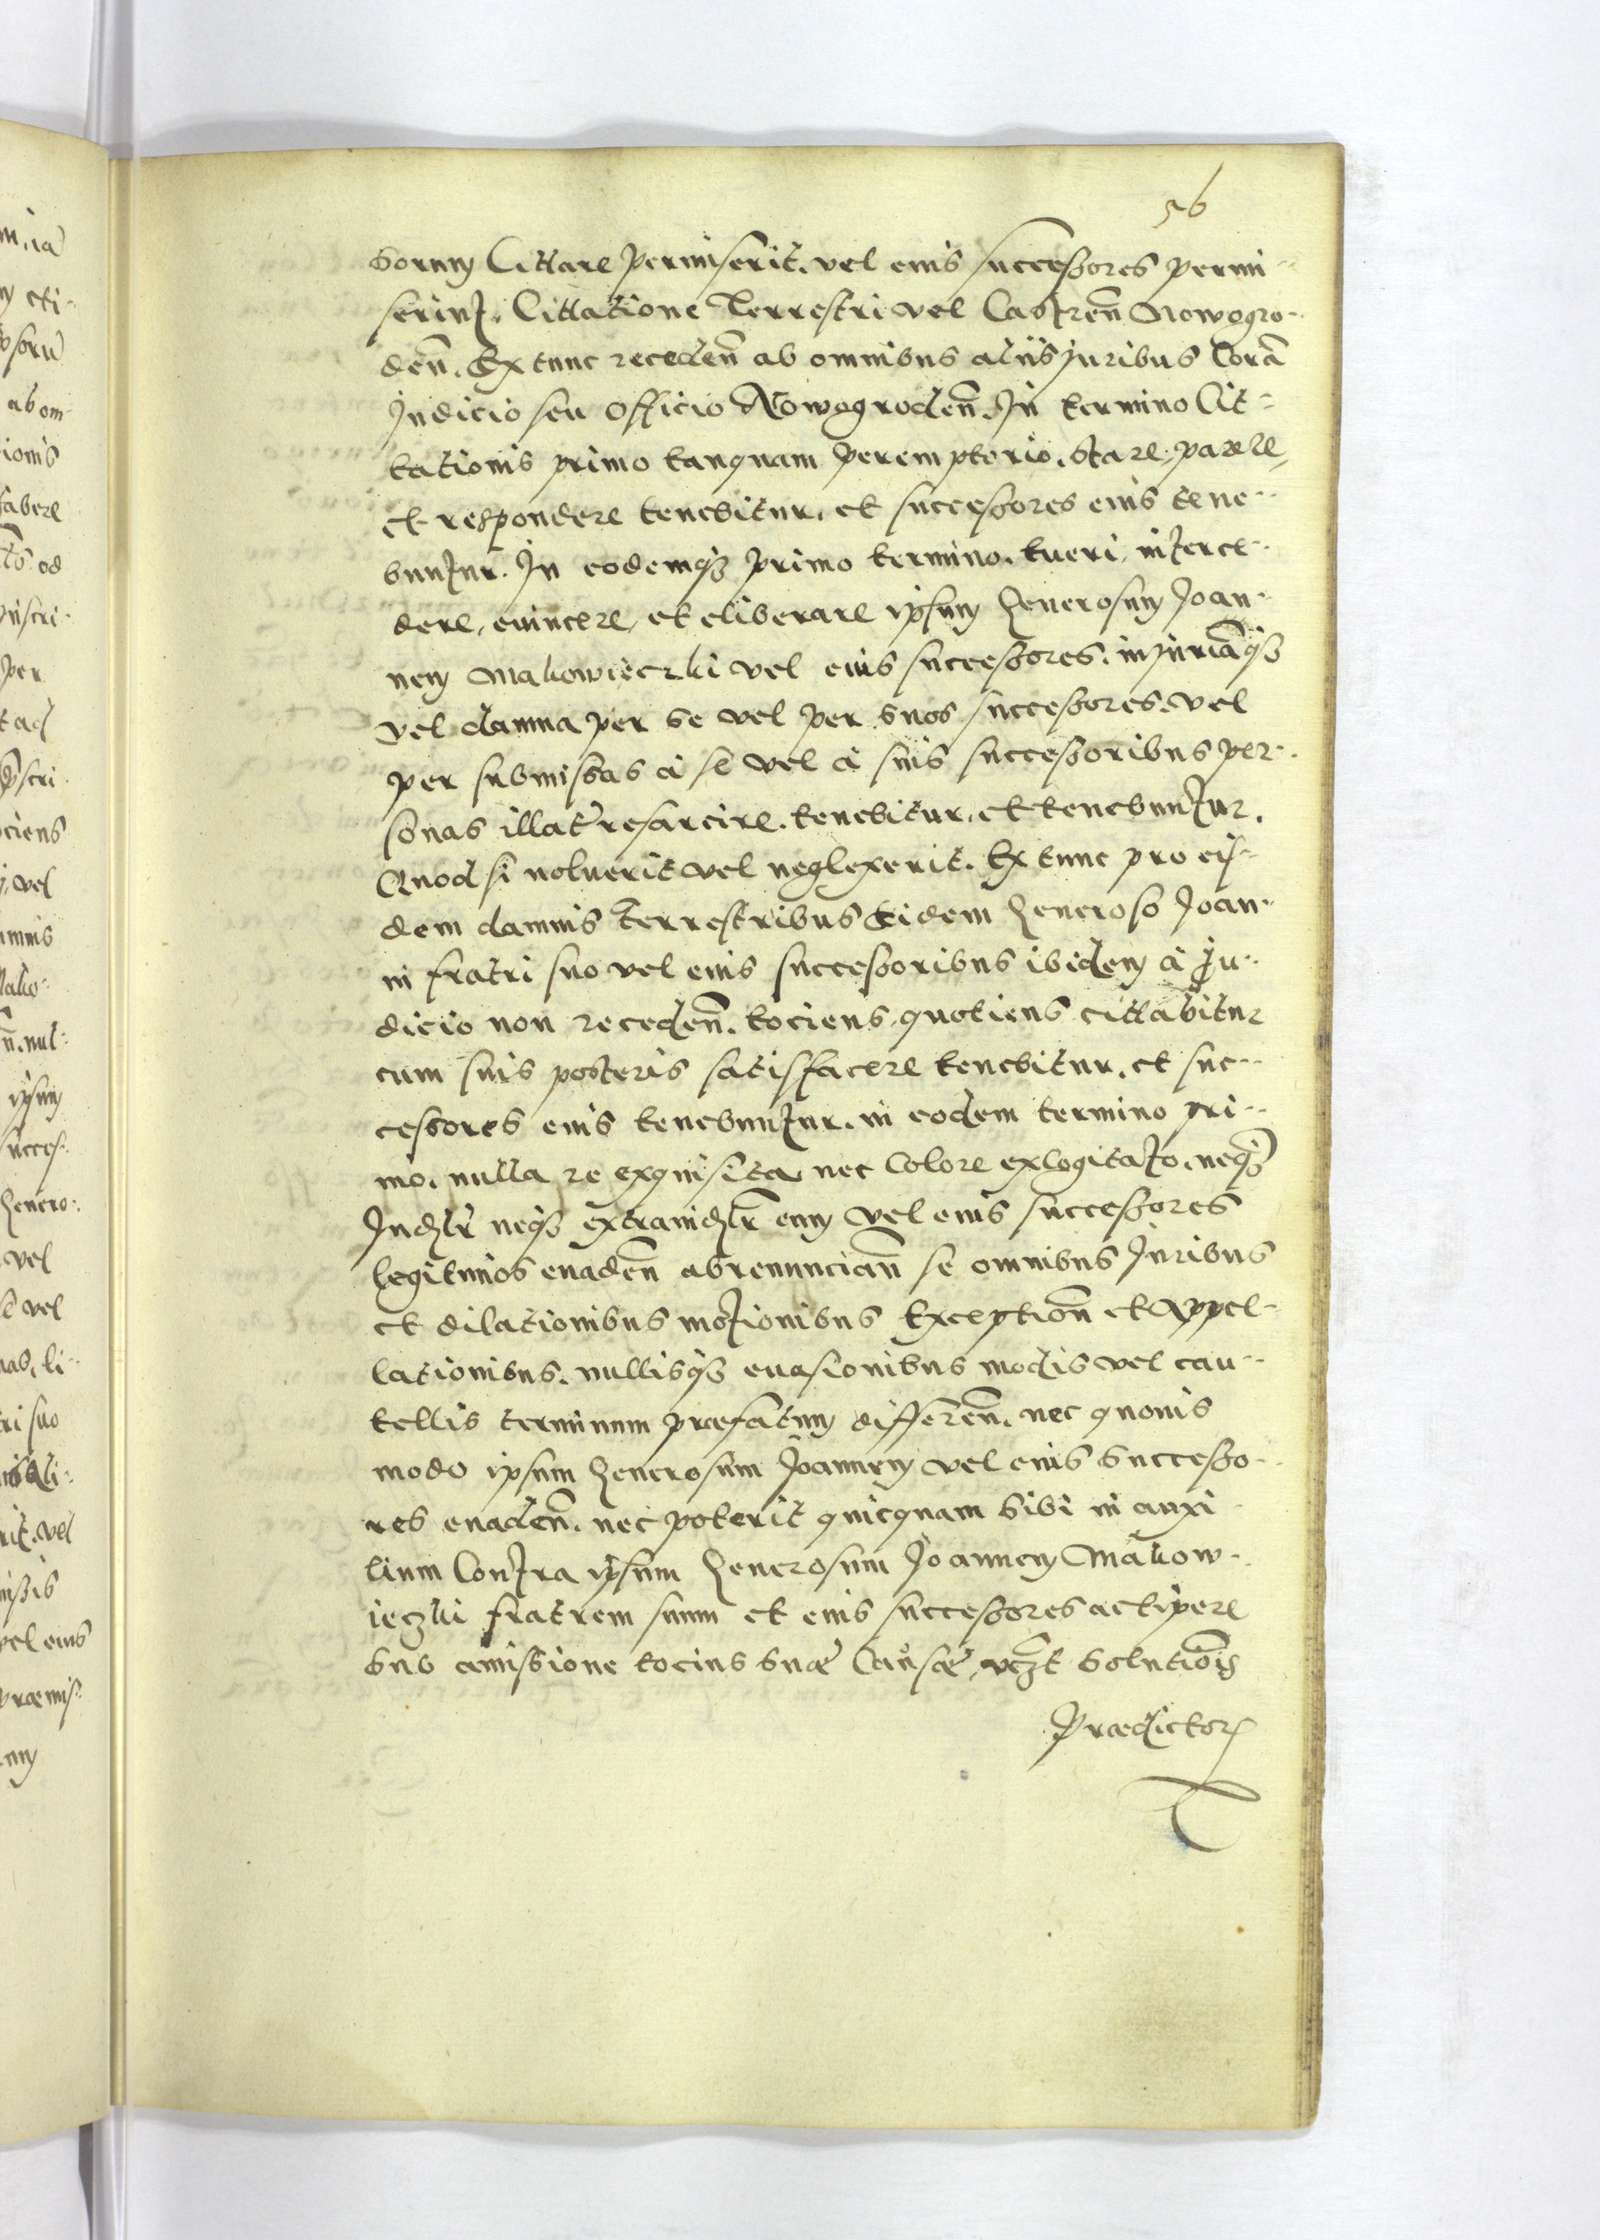 56
sorum Cittare permiserit. vel eius successores permi-
serint. Cittatione Terrestri vel Castren̄ Nowogro-
den̄. Ex tunc receden̄ ab omnibus aliis juribus Corā
Judicio seu officio Nowogroden̄. In termino Cit-
tationis primo tanquam peremptorio. Stare, parere,
et respondere tenebitur. et successores eius tene-
buntur. In eodemqʒ primo termino. tueri, interce-
dere, euincere, et eliberare ipsum Generosum Joan-
nem Makowieczki vel eius successores. injuriāqʒ
vel damna per se vel per suos successores. vel
per submissas à se vel à suis successoribus per-
sonas illat resarcire. tenebitur. et tenebuntur.
Quod si noluerit vel neglexerit. Ex tunc pro eis-
dem damnis terrestribus Eidem Generoso Joan-
ni fratri suo vel eius successoribus ibidem à Ju-
dicio non receden̄. tociens, quotiens cittabitur
cum suis posteris satisfacere tenebitur. et suc-
cessores eius tenebuntur. in eodem termino pri-
mo. nulla re exquisita nec Colore exCogitato. neqʒ
Judʒlr neqʒ extraiudʒlr eum vel eius successores
legitimos euaden̄ abrenuncian̄ se omnibus Juribus
et dilationibus motionibus Exception̄ et Appel-
lationibus. nullisqʒ euasionibus modis vel cau-
tellis terminum præfatum differen̄. nec quouis
modo ipsum Generosum Joannem vel eius Successo-
res euaden̄. nec poterit quicquam Sibi in auxi-
lium Contra ipsum Generosum Joannem Makow-
ieczki fratrem suum et eius successores accipere
Sub amissione tocius Suæ Causæ, vcʒt Solutiois
Prædictorꝝ